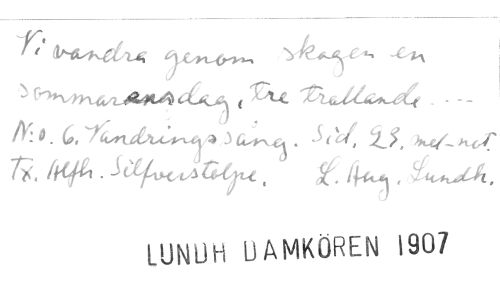 Vi vandra genom skogen en
sommardag, tre trallande ....
N:o. 6. Vandringssång. Sid. 23.
Tx. Alfh. Silfverstolpe. L. Aug. Lundh.
LUNDH DAMKÖREN 1907